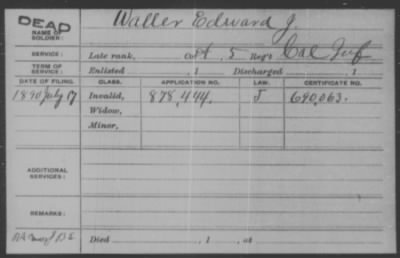 DEAD
NAME OF SOLDIER:
Waller Edward J.
SERVICE:
Late rank, Co. H, 5 Reg't Cal Inf
TERM OF SERVICE:
Enlisted , 1 Discharged , 1
DATE OF FILING. CLASS. APPLICATION NO. LAW. CERTIFICATE NO.
1890 July 17 Invalid, 878,444. J 690,063.
Widow,
Minor,
ADDITIONAL SERVICES:
REMARKS:
Died , 1 , at